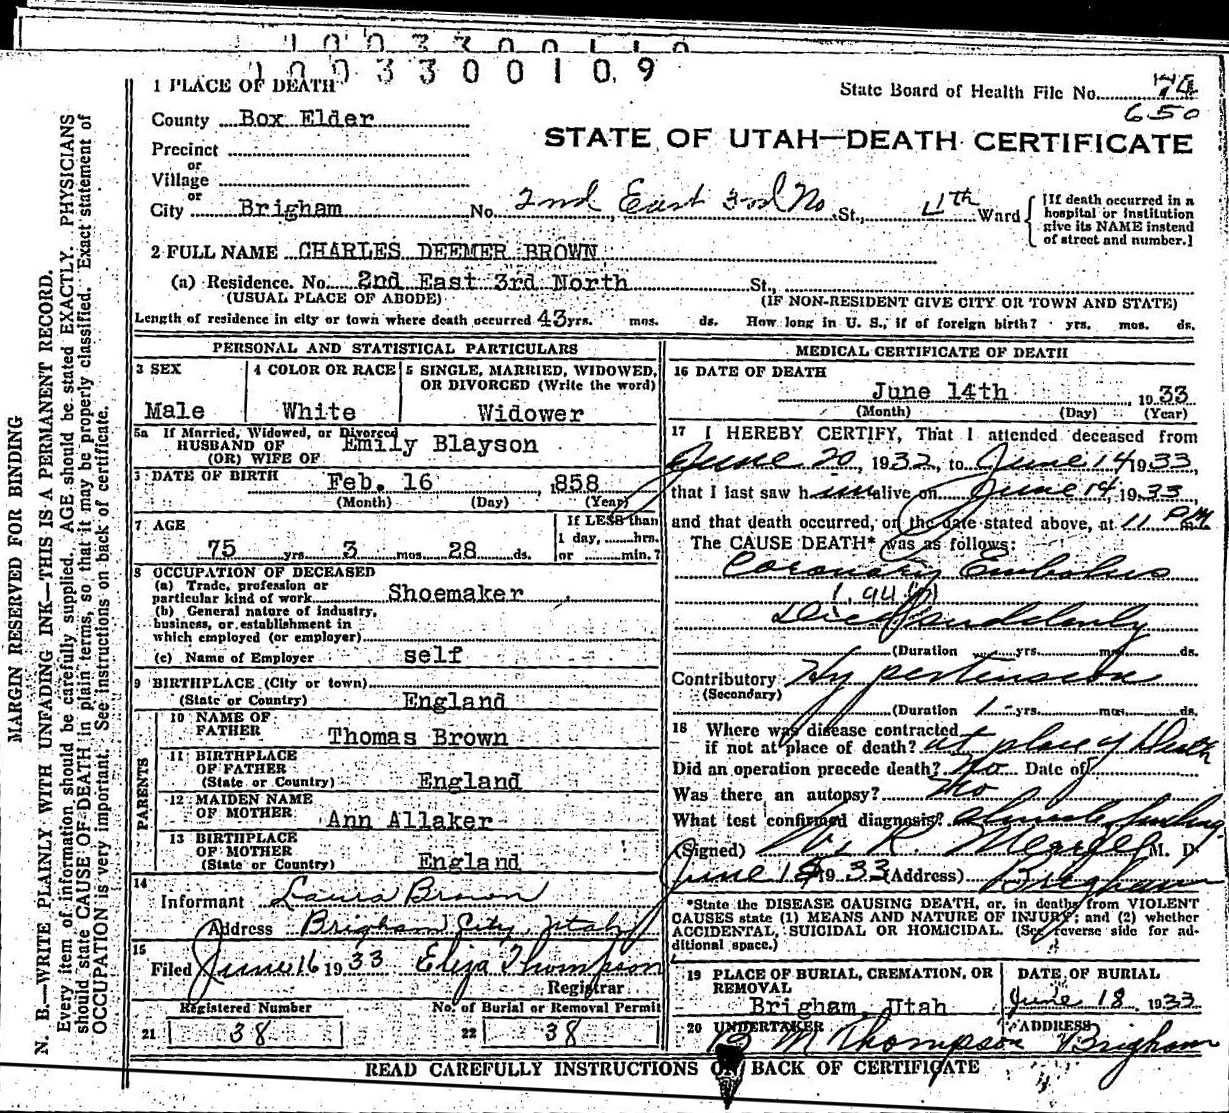 1 0 0 3 3 0 0 1 0 9
1 PLACE OF DEATH
State Board of Health File No. 74
650
County Box Elder
STATE OF UTAH—DEATH CERTIFICATE
Precinct
or
Village
or
City Brigham No. 2nd East 3rd No St., 4th Ward
[If death occurred in a
hospital or institution
give its NAME instead
of street and number.]
2 FULL NAME CHARLES DEEMER BROWN
(a) Residence. No. 2nd East 3rd North St.,
(USUAL PLACE OF ABODE) (IF NON-RESIDENT GIVE CITY OR TOWN AND STATE)
Length of residence in city or town where death occurred 43 yrs. mos. ds. How long in U. S., if of foreign birth? yrs. mos. ds.
PERSONAL AND STATISTICAL PARTICULARS
3 SEX
Male
4 COLOR OR RACE
White
5 SINGLE, MARRIED, WIDOWED,
OR DIVORCED (Write the word)
Widower
5a If Married, Widowed, or Divorced
HUSBAND OF Emily Blayson
(OR) WIFE OF
6 DATE OF BIRTH Feb. 16 ,858
(Month) (Day) (Year)
7 AGE
75 yrs 3 mos. 28 ds.
If LESS than
1 day, hrs.
or min.?
8 OCCUPATION OF DECEASED
(a) Trade, profession or
particular kind of work Shoemaker
(b) General nature of industry,
business, or establishment in
which employed (or employer)
(c) Name of Employer self
9 BIRTHPLACE (City or town)
(State or Country) England
PARENTS
10 NAME OF
FATHER Thomas Brown
11 BIRTHPLACE
OF FATHER
(State or Country) England
12 MAIDEN NAME
OF MOTHER Ann Allaker
13 BIRTHPLACE
OF MOTHER
(State or Country) England
14
Informant Laura Brown
Address Brigham City, Utah
15
Filed June 16 1933 Eliza Thompson
Registrar
Registered Number No. of Burial or Removal Permit
21 38 22 38
MEDICAL CERTIFICATE OF DEATH
16 DATE OF DEATH
June 14th , 1933
(Month) (Day) (Year)
17 I HEREBY CERTIFY, That I attended deceased from
June 20, 1932, to June 14 1933,
that I last saw h im alive on June 14, 1933,
and that death occurred, on the date stated above, at 11 PM
The CAUSE DEATH* was as follows:
Coronary Embolus
Died Suddenly
(Duration yrs. mos. ds.
Contributory Hypertension
(Secondary)
(Duration 1 yrs. mos. ds.
18 Where was disease contracted
if not at place of death? at place of Death
Did an operation precede death? No Date of
Was there an autopsy? No
What test confirmed diagnosis?
(Signed) W. R. M. D.
June 15 1933 (Address) Brigham
*State the DISEASE CAUSING DEATH, or, in deaths from VIOLENT
CAUSES state (1) MEANS AND NATURE OF INJURY; and (2) whether
ACCIDENTAL, SUICIDAL OR HOMICIDAL. (See reverse side for ad-
ditional space.)
19 PLACE OF BURIAL, CREMATION, OR
REMOVAL
Brigham, Utah
DATE OF BURIAL
June 18, 1933
20 UNDERTAKER
M Thompson
ADDRESS
Brigham
READ CAREFULLY INSTRUCTIONS ON BACK OF CERTIFICATE
MARGIN RESERVED FOR BINDING
N. B.—WRITE PLAINLY WITH UNFADING INK—THIS IS A PERMANENT RECORD.
Every item of information should be carefully supplied. AGE should be stated EXACTLY. PHYSICIANS
should state CAUSE OF DEATH in plain terms, so that it may be properly classified. Exact statement of
OCCUPATION is very important. See instructions on back of certificate.